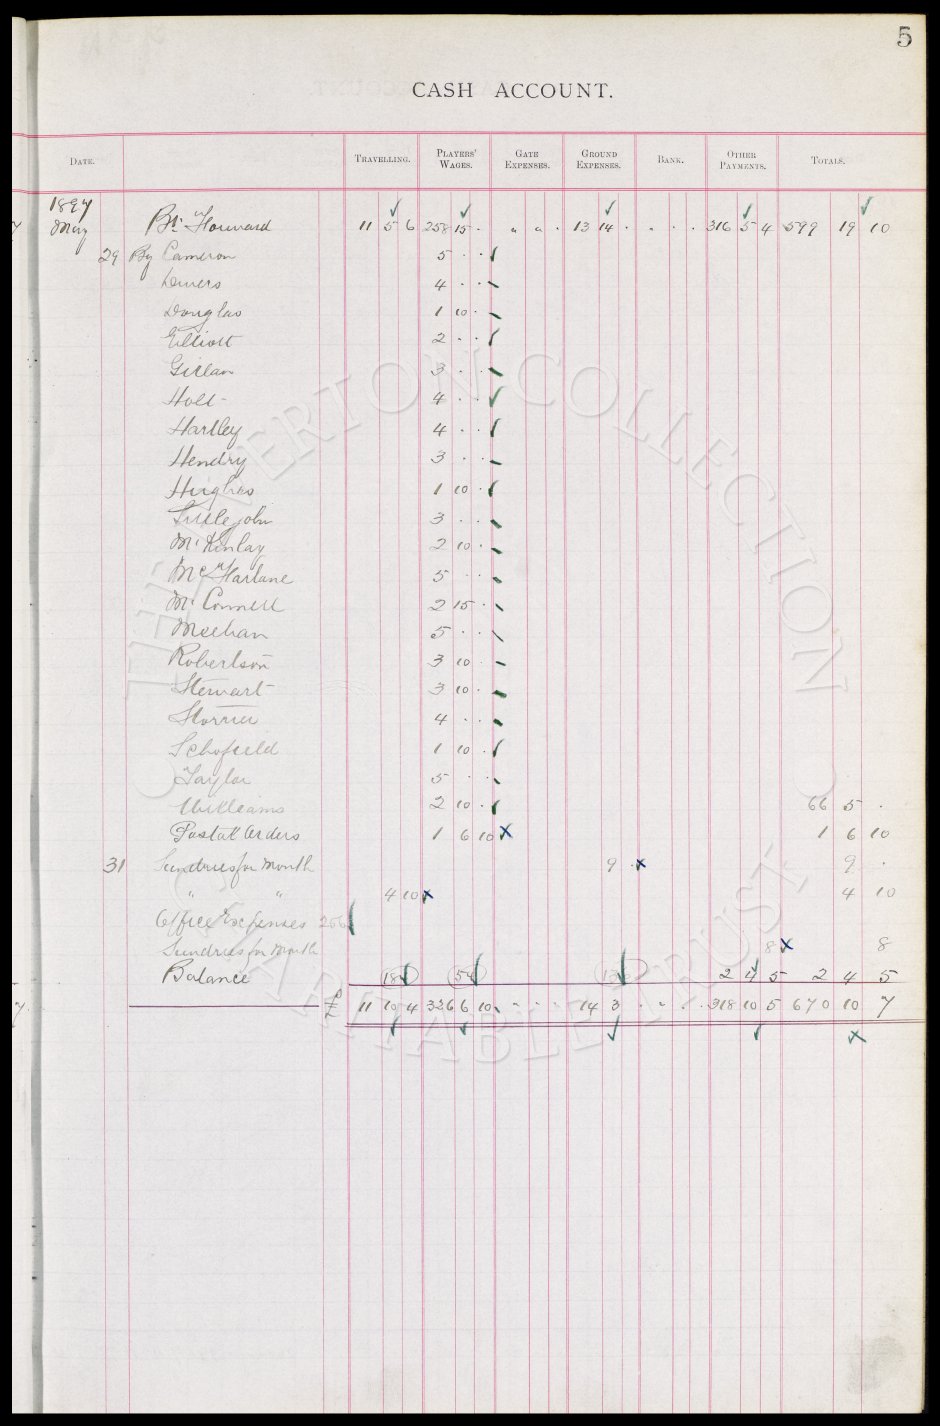 5
CASH ACCOUNT.
DATE. TRAVELLING. PLAYERS' WAGES. GATE EXPENSES. GROUND EXPENSES. BANK. OTHER PAYMENTS. TOTALS.
1897
May Bt. Forward 11 5 6 258 15 · " " · 13 14 · " · · 316 5 4 599 19 10
29 By Cameron 5 · ·
4 · ·
Douglas 1 10 ·
Elliott 2 · ·
Gillan 3 · ·
Holt 4 · ·
Hartley 4 · ·
Hendry 3 · ·
Hughes 1 10 ·
Littlejohn 3 · ·
McKinlay 2 10 ·
McFarlane 5 · ·
McConnell 2 15 ·
Meehan 5 · ·
Robertson 3 10 ·
Stewart 3 10 ·
Storrier 4 · ·
Schofield 1 10 ·
Taylor 5 · ·
Williams 2 10 · 66 5 ·
Postal Orders 1 6 10 1 6 10
31 Sundries for Month 9 · 9 ·
" " 4 10 4 10
Office Expenses 256
Sundries for Month 8 8
Balance 184 54 135 2 4 5 2 4 5
£ 11 10 4 326 6 10 " · · 14 3 · " · · 318 10 5 670 10 7
THE EVERTON COLLECTION
CHARITABLE TRUST